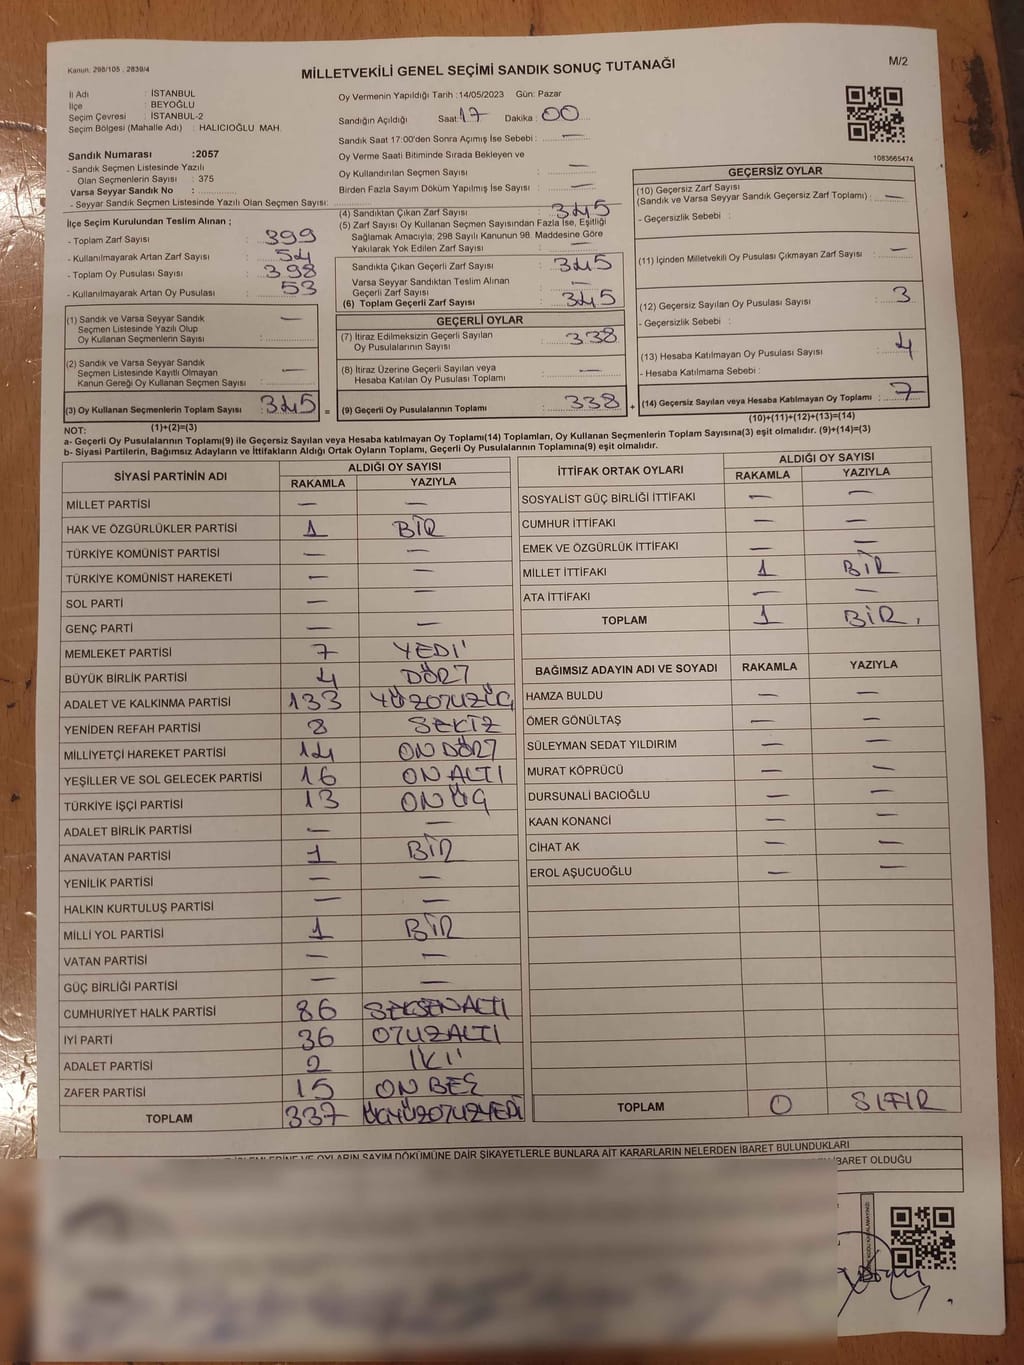 Kanun: 298/105 , 2839/4
MİLLETVEKİLİ GENEL SEÇİMİ SANDIK SONUÇ TUTANAĞI
M/2
İl Adı : İSTANBUL
İlçe : BEYOĞLU
Seçim Çevresi : İSTANBUL-2
Seçim Bölgesi (Mahalle Adı) : HALICIOĞLU MAH.
Sandık Numarası :2057
- Sandık Seçmen Listesinde Yazılı
Olan Seçmenlerin Sayısı : 375
Varsa Seyyar Sandık No :
- Seyyar Sandık Seçmen Listesinde Yazılı Olan Seçmen Sayısı:
Oy Vermenin Yapıldığı Tarih :14/05/2023 Gün: Pazar
Sandığın Açıldığı Saat: 17 Dakika : 00
Sandık Saat 17:00'den Sonra Açımış İse Sebebi : —
Oy Verme Saati Bitiminde Sırada Bekleyen ve
Oy Kullandırılan Seçmen Sayısı : —
Birden Fazla Sayım Döküm Yapılmış İse Sayısı : —
1083665474
İlçe Seçim Kurulundan Teslim Alınan ;
- Toplam Zarf Sayısı : 399
- Kullanılmayarak Artan Zarf Sayısı : 54
- Toplam Oy Pusulası Sayısı : 398
- Kullanılmayarak Artan Oy Pusulası : 53
(1) Sandık ve Varsa Seyyar Sandık
Seçmen Listesinde Yazılı Olup
Oy Kullanan Seçmenlerin Sayısı : —
(2) Sandık ve Varsa Seyyar Sandık
Seçmen Listesinde Kayıtlı Olmayan
Kanun Gereği Oy Kullanan Seçmen Sayısı : —
(3) Oy Kullanan Seçmenlerin Toplam Sayısı : 345
(1)+(2)=(3)
(4) Sandıktan Çıkan Zarf Sayısı : 345
(5) Zarf Sayısı Oy Kullanan Seçmen Sayısından Fazla İse, Eşitliği
Sağlamak Amacıyla; 298 Sayılı Kanunun 98. Maddesine Göre
Yakılarak Yok Edilen Zarf Sayısı : —
Sandıkta Çıkan Geçerli Zarf Sayısı : 345
Varsa Seyyar Sandıktan Teslim Alınan
Geçerli Zarf Sayısı : —
(6) Toplam Geçerli Zarf Sayısı : 345
GEÇERLİ OYLAR
(7) İtiraz Edilmeksizin Geçerli Sayılan
Oy Pusulalarının Sayısı : 338
(8) İtiraz Üzerine Geçerli Sayılan veya
Hesaba Katılan Oy Pusulası Toplamı : —
= (9) Geçerli Oy Pusulalarının Toplamı : 338
GEÇERSİZ OYLAR
(10) Geçersiz Zarf Sayısı
(Sandık ve Varsa Seyyar Sandık Geçersiz Zarf Toplamı) : —
- Geçersizlik Sebebi :
(11) İçinden Milletvekili Oy Pusulası Çıkmayan Zarf Sayısı : —
(12) Geçersiz Sayılan Oy Pusulası Sayısı : 3
- Geçersizlik Sebebi :
(13) Hesaba Katılmayan Oy Pusulası Sayısı : 4
- Hesaba Katılmama Sebebi :
+ (14) Geçersiz Sayılan veya Hesaba Katılmayan Oy Toplamı : 7
(10)+(11)+(12)+(13)=(14)
NOT:
a- Geçerli Oy Pusulalarının Toplamı(9) ile Geçersiz Sayılan veya Hesaba katılmayan Oy Toplamı(14) Toplamları, Oy Kullanan Seçmenlerin Toplam Sayısına(3) eşit olmalıdır. (9)+(14)=(3)
b- Siyasi Partilerin, Bağımsız Adayların ve İttifakların Aldığı Oyların Toplamı, Geçerli Oy Pusulalarının Toplamına(9) eşit olmalıdır.
SİYASİ PARTİNİN ADI ALDIĞI OY SAYISI
RAKAMLA YAZIYLA
MİLLET PARTİSİ — —
HAK VE ÖZGÜRLÜKLER PARTİSİ 1 BİR
TÜRKİYE KOMÜNİST PARTİSİ — —
TÜRKİYE KOMÜNİST HAREKETİ — —
SOL PARTİ — —
GENÇ PARTİ — —
MEMLEKET PARTİSİ 7 YEDİ
BÜYÜK BİRLİK PARTİSİ 4 DÖRT
ADALET VE KALKINMA PARTİSİ 133 YÜZOTUZÜÇ
YENİDEN REFAH PARTİSİ 8 SEKİZ
MİLLİYETÇİ HAREKET PARTİSİ 14 ON DÖRT
YEŞİLLER VE SOL GELECEK PARTİSİ 16 ON ALTI
TÜRKİYE İŞÇİ PARTİSİ 13 ON ÜÇ
ADALET BİRLİK PARTİSİ — —
ANAVATAN PARTİSİ 1 BİR
YENİLİK PARTİSİ — —
HALKIN KURTULUŞ PARTİSİ — —
MİLLİ YOL PARTİSİ 1 BİR
VATAN PARTİSİ — —
GÜÇ BİRLİĞİ PARTİSİ — —
CUMHURİYET HALK PARTİSİ 86 SEKSENALTI
İYİ PARTİ 36 OTUZALTI
ADALET PARTİSİ 2 İKİ
ZAFER PARTİSİ 15 ON BEŞ
TOPLAM 337 ÜÇYÜZOTUZYEDİ
İTTİFAK ORTAK OYLARI ALDIĞI OY SAYISI
RAKAMLA YAZIYLA
SOSYALİST GÜÇ BİRLİĞİ İTTİFAKI — —
CUMHUR İTTİFAKI — —
EMEK VE ÖZGÜRLÜK İTTİFAKI — —
MİLLET İTTİFAKI 1 BİR
ATA İTTİFAKI — —
TOPLAM 1 BİR.
BAĞIMSIZ ADAYIN ADI VE SOYADI RAKAMLA YAZIYLA
HAMZA BULDU — —
ÖMER GÖNÜLTAŞ — —
SÜLEYMAN SEDAT YILDIRIM — —
MURAT KÖPRÜCÜ — —
DURSUNALİ BACIOĞLU — —
KAAN KONANCİ — —
CİHAT AK — —
EROL AŞUCUOĞLU — —
TOPLAM 0 SIFIR
OYLARIN SAYIM DÖKÜMÜNE DAİR ŞİKAYETLERLE BUNLARA AİT KARARLARIN NELERDEN İBARET BULUNDUKLARI
İBARET OLDUĞU